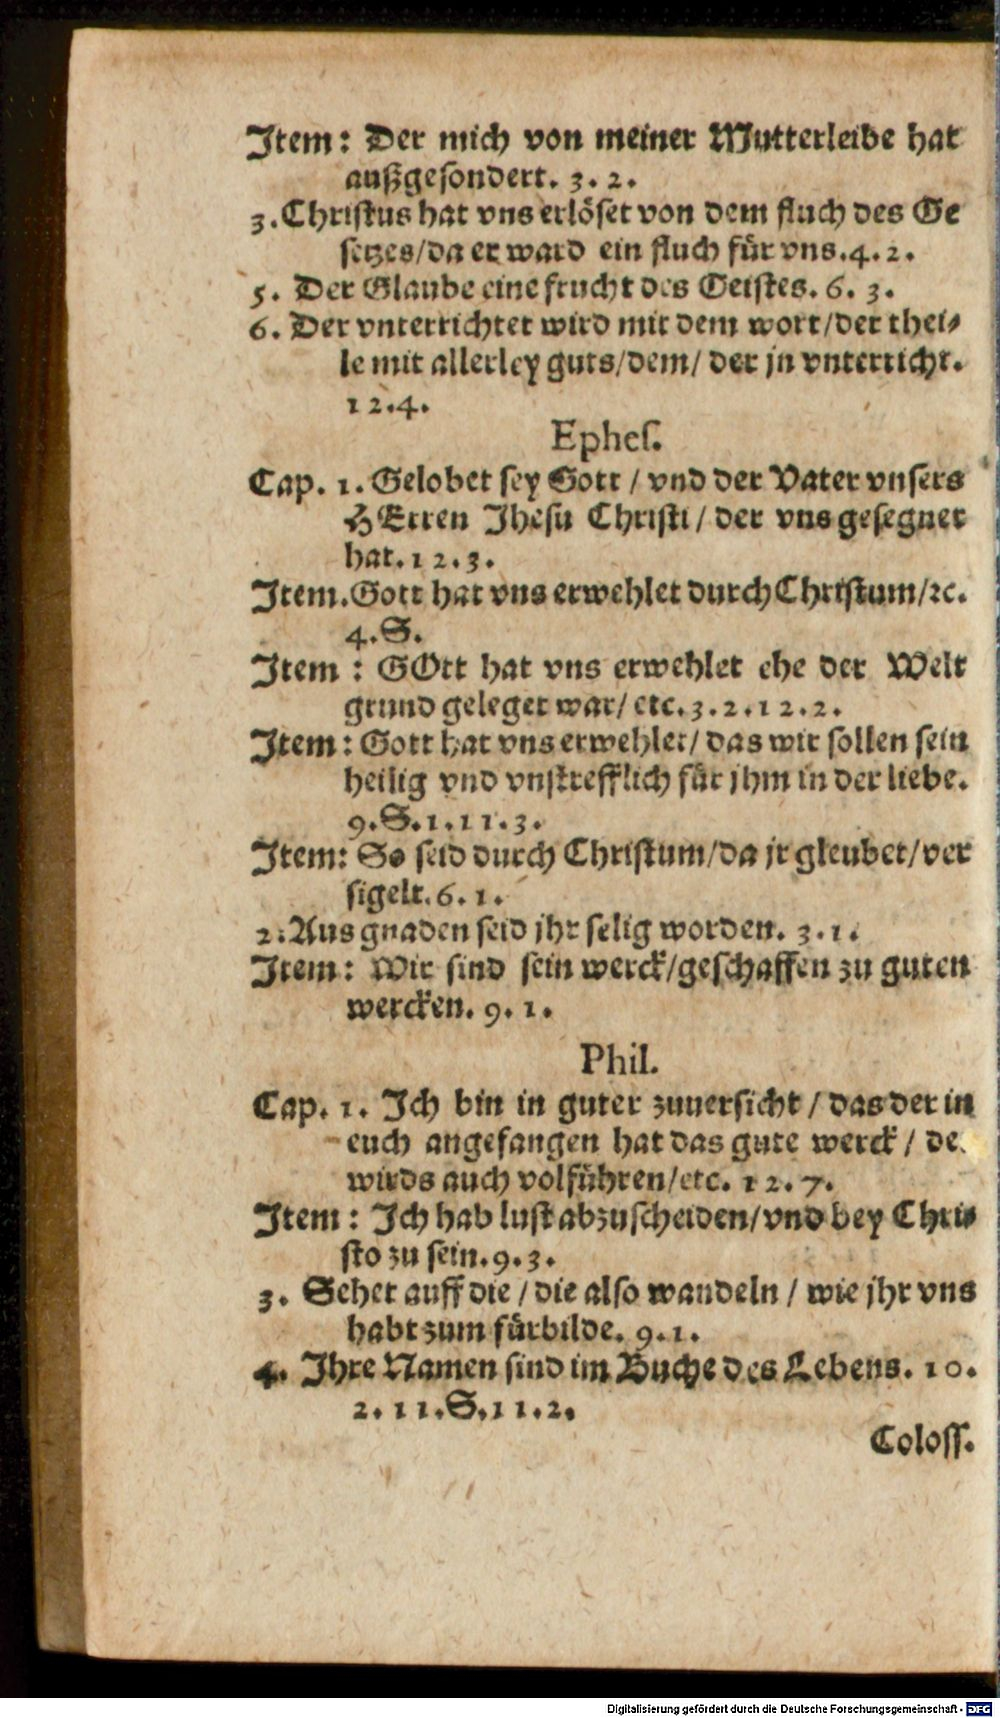 Item: Der mich von meiner Mutterleibe hat
außgesondert. 3. 2.
3. Christus hat vns erlöset von dem fluch des Ge
setzes/da er ward ein fluch für vns. 4. 2.
5. Der Glaube eine frucht des Geistes. 6. 3.
6. Der vnterrichtet wird mit dem wort/der thei-
le mit allerley guts/dem/ der jn vnterricht.
12. 4.
Ephes.
Cap. 1. Gelobet sey Gott / vnd der Vater vnsers
HErren Jhesu Christi / der vns gesegnet
hat. 12. 3.
Item. Gott hat vns erwehlet durch Christum/ꝛc.
4. S.
Item : GOtt hat vns erwehlet ehe der Welt
grund geleget war/ etc. 3. 2. 12. 2.
Item: Gott hat vns erwehlet/ das wir sollen sein
heilig vnd vnstrefflich für jhm in der liebe.
9. S. 1. 11. 3.
Item: So seid durch Christum/da jr gleubet/ver
sigelt. 6. 1.
2. Aus gnaden seid jhr selig worden. 3. 1.
Item: Wir sind sein werck/geschaffen zu guten
wercken. 9. 1.
Phil.
Cap. 1. Ich bin in guter zuuersicht / das der in
euch angefangen hat das gute werck / de
wirds auch volführen/etc. 12. 7.
Item : Ich hab lust abzuscheiden/vnd bey Chri-
sto zu sein. 9. 3.
3. Sehet auff die / die also wandeln / wie jhr vns
habt zum fürbilde. 9. 1.
4. Ihre Namen sind im Buche des Lebens. 10.
2. 11. S. 11. 2.
Coloss.
Digitalisierung gefördert durch die Deutsche Forschungsgemeinschaft - DFG